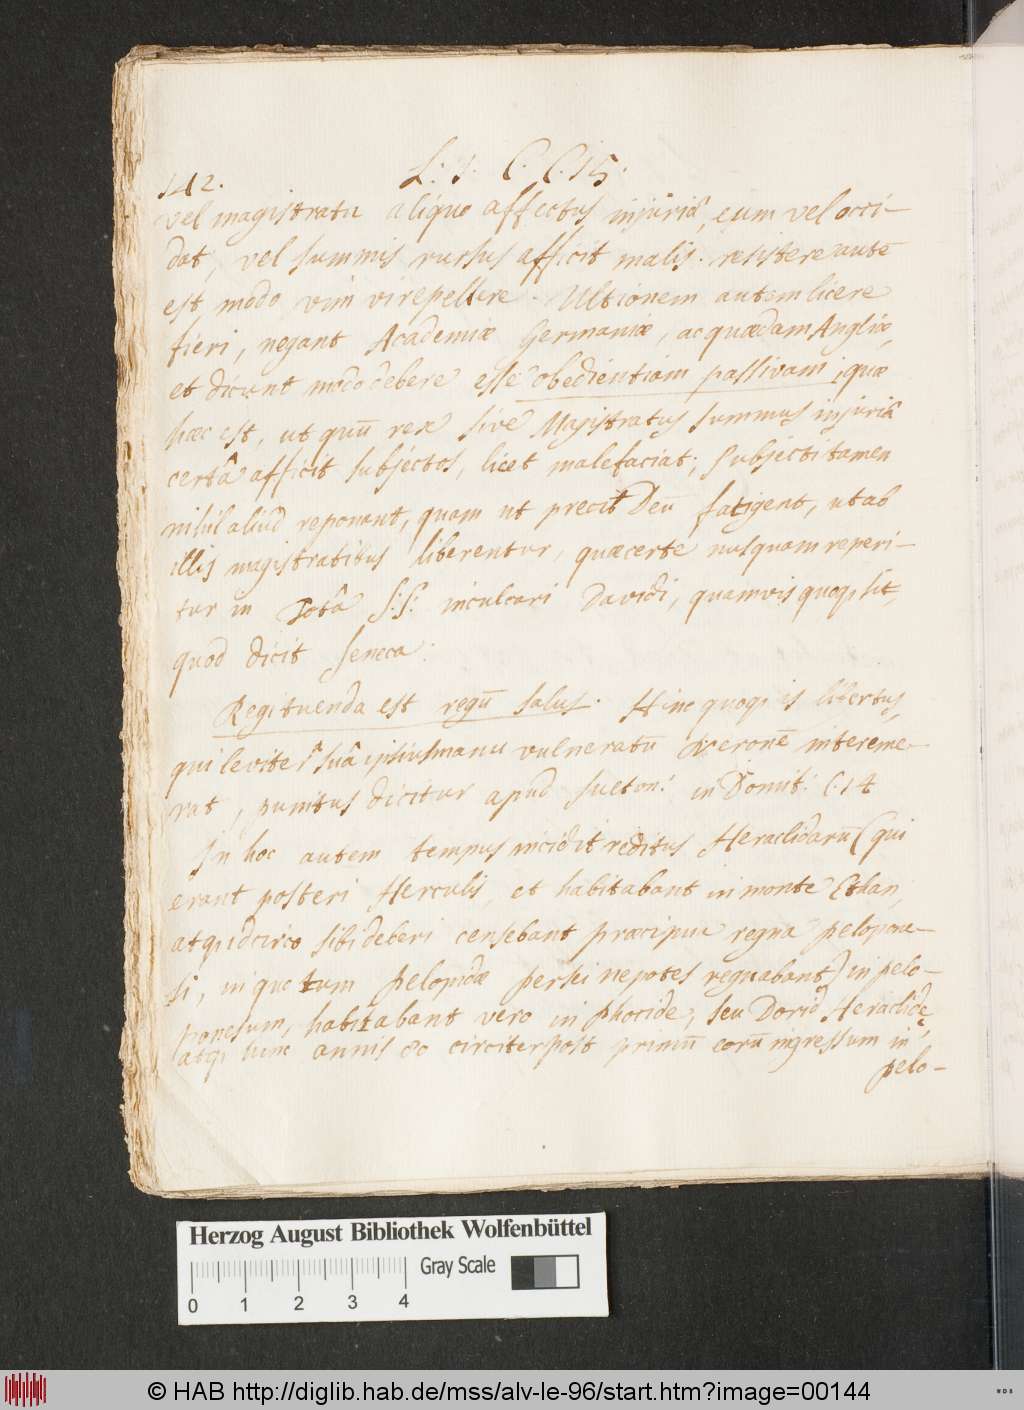 142. L: 1. C. C. 15.
vel magistratu aliquo affectus injuriâ, eum vel occi-
dat, vel summis rursus afficit malis. resistere autē
est modo vim vi repellere. Ultionem autem licere
fieri, negant Academiæ Germaniæ, ac quædam Angliæ,
et dicunt modo debere esse obedientiam passivam, quæ
hæc est, ut quū rex sive Magistratus summus injuriâ
certâ afficit subjectos, licet malefaciat; Subjecti tamen
nihil aliud reponant, quam ut precib Deū fatigent, ut ab
illis magistratibus liberentur, quæ certe nusquam reperi-
tur in totâ S: S: inculcari Davidi, quamvis quoq; sit,
quod dicit Seneca:
Regi tuenda est regū salus. Hinc quoq; is libertus,
qui leviter suâ ipsius manu vulneratū Neronē intereme-
rat, punitus dicitur apud Sueton: in Domit: C. 14
In hoc autem tempus incidit reditus Heraclidarū (qui
erant posteri Herculis, et habitabant in monte Ethan,
atq; idcirco sibi deberi censebant præcipue regna pelopone-
si, in quo tum Pelopidæ Persei nepotes regnabant) in pelo-
ponesum, habitabant vero in Phocide, seu Dorid Heraclidę
atq; hinc annis 80 circiter post primū eorū ingressum in
pelo-
Herzog August Bibliothek Wolfenbüttel
Gray Scale
0 1 2 3 4
© HAB http://diglib.hab.de/mss/alv-le-96/start.htm?image=00144